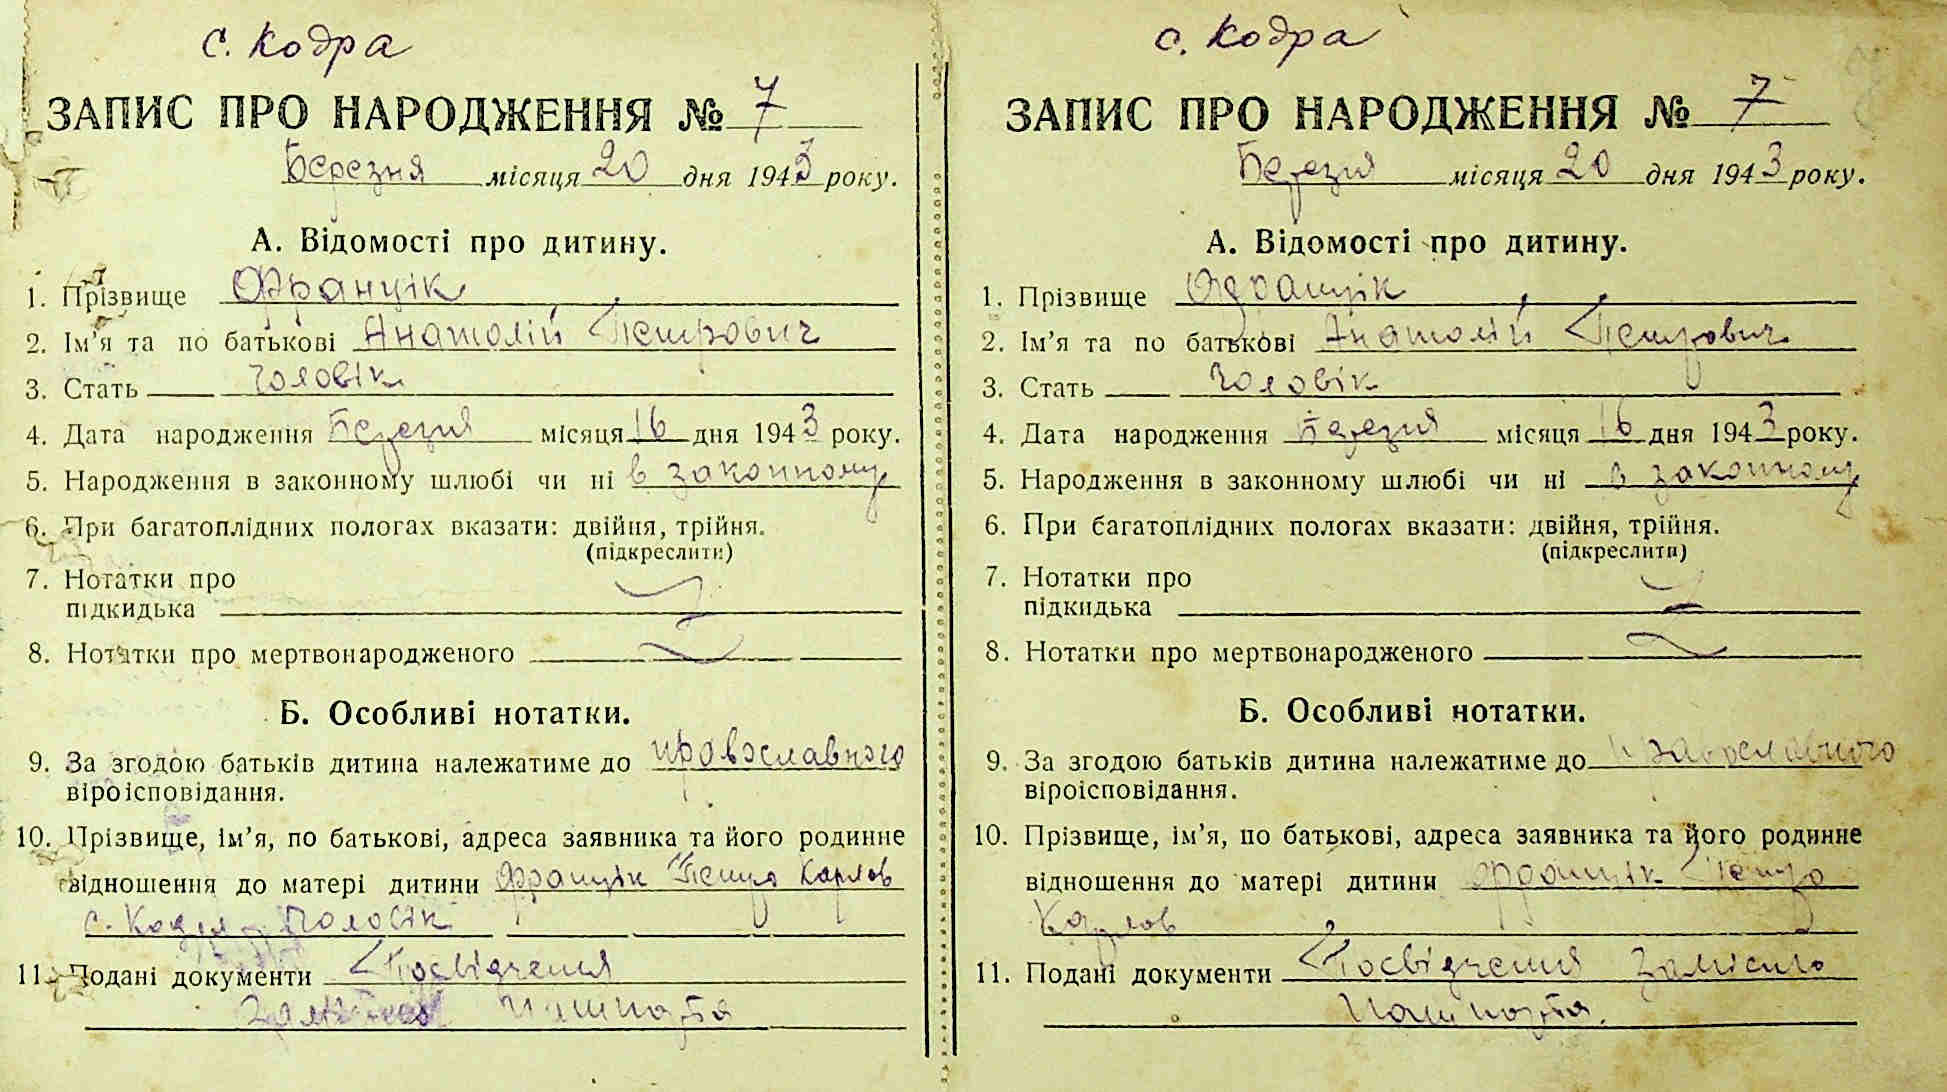 с. Кодра
ЗАПИС ПРО НАРОДЖЕННЯ № 7
Березня місяця 20 дня 1943 року.
А. Відомості про дитину.
1. Прізвище Францік
2. Ім’я та по батькові Анатолій Петрович
3. Стать чоловік
4. Дата народження Березня місяця 16 дня 1943 року.
5. Народження в законному шлюбі чи ні в законному
6. При багатоплідних пологах вказати: двійня, трійня.
(підкреслити)
7. Нотатки про
підкидька
8. Нотатки про мертвонародженого
Б. Особливі нотатки.
9. За згодою батьків дитина належатиме до православного
віроісповідання.
10. Прізвище, ім’я, по батькові, адреса заявника та його родинне
відношення до матері дитини Францік Петро Карлов
с. Кодра чоловік
11. Подані документи Посвідчення
замісць пашпорта
с. Кодра
ЗАПИС ПРО НАРОДЖЕННЯ № 7
Березня місяця 20 дня 1943 року.
А. Відомості про дитину.
1. Прізвище Францік
2. Ім’я та по батькові Анатолій Петрович
3. Стать чоловік
4. Дата народження Березня місяця 16 дня 1943 року.
5. Народження в законному шлюбі чи ні в законному
6. При багатоплідних пологах вказати: двійня, трійня.
(підкреслити)
7. Нотатки про
підкидька
8. Нотатки про мертвонародженого
Б. Особливі нотатки.
9. За згодою батьків дитина належатиме до православного
віроісповідання.
10. Прізвище, ім’я, по батькові, адреса заявника та його родинне
відношення до матері дитини Францік Петро
Карлов
11. Подані документи Посвідчення замісць
пашпорта.